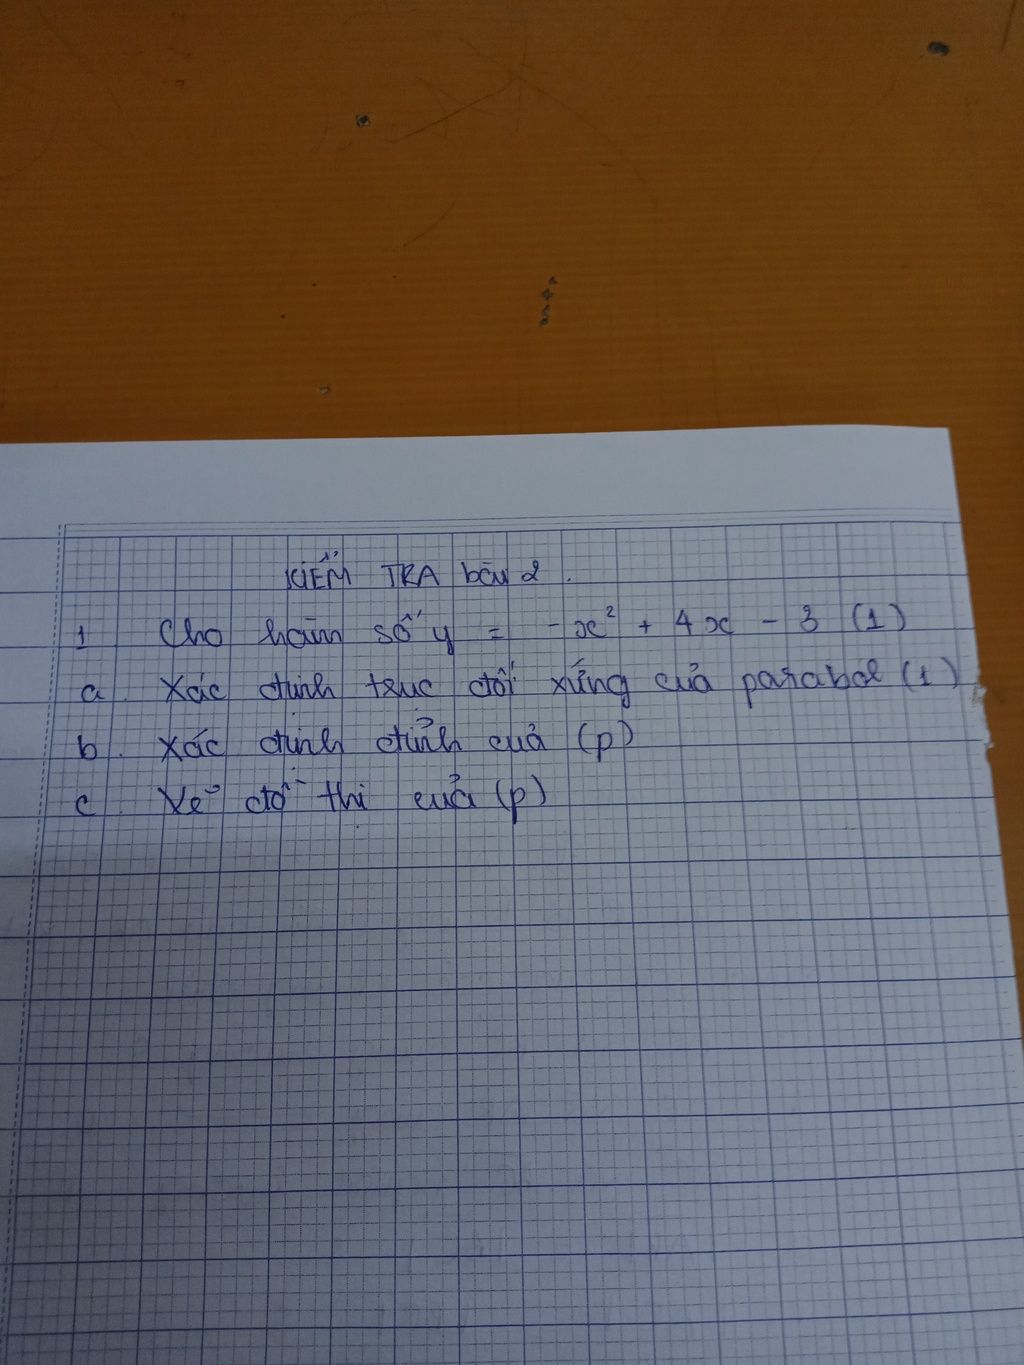 KIỂM TRA bài 2.
1 Cho hàm số y = -x² + 4x - 3 (1)
a. Xác định trục đối xứng của parabol (1)
b. Xác định đỉnh của (p)
c. Vẽ đồ thị của (p)